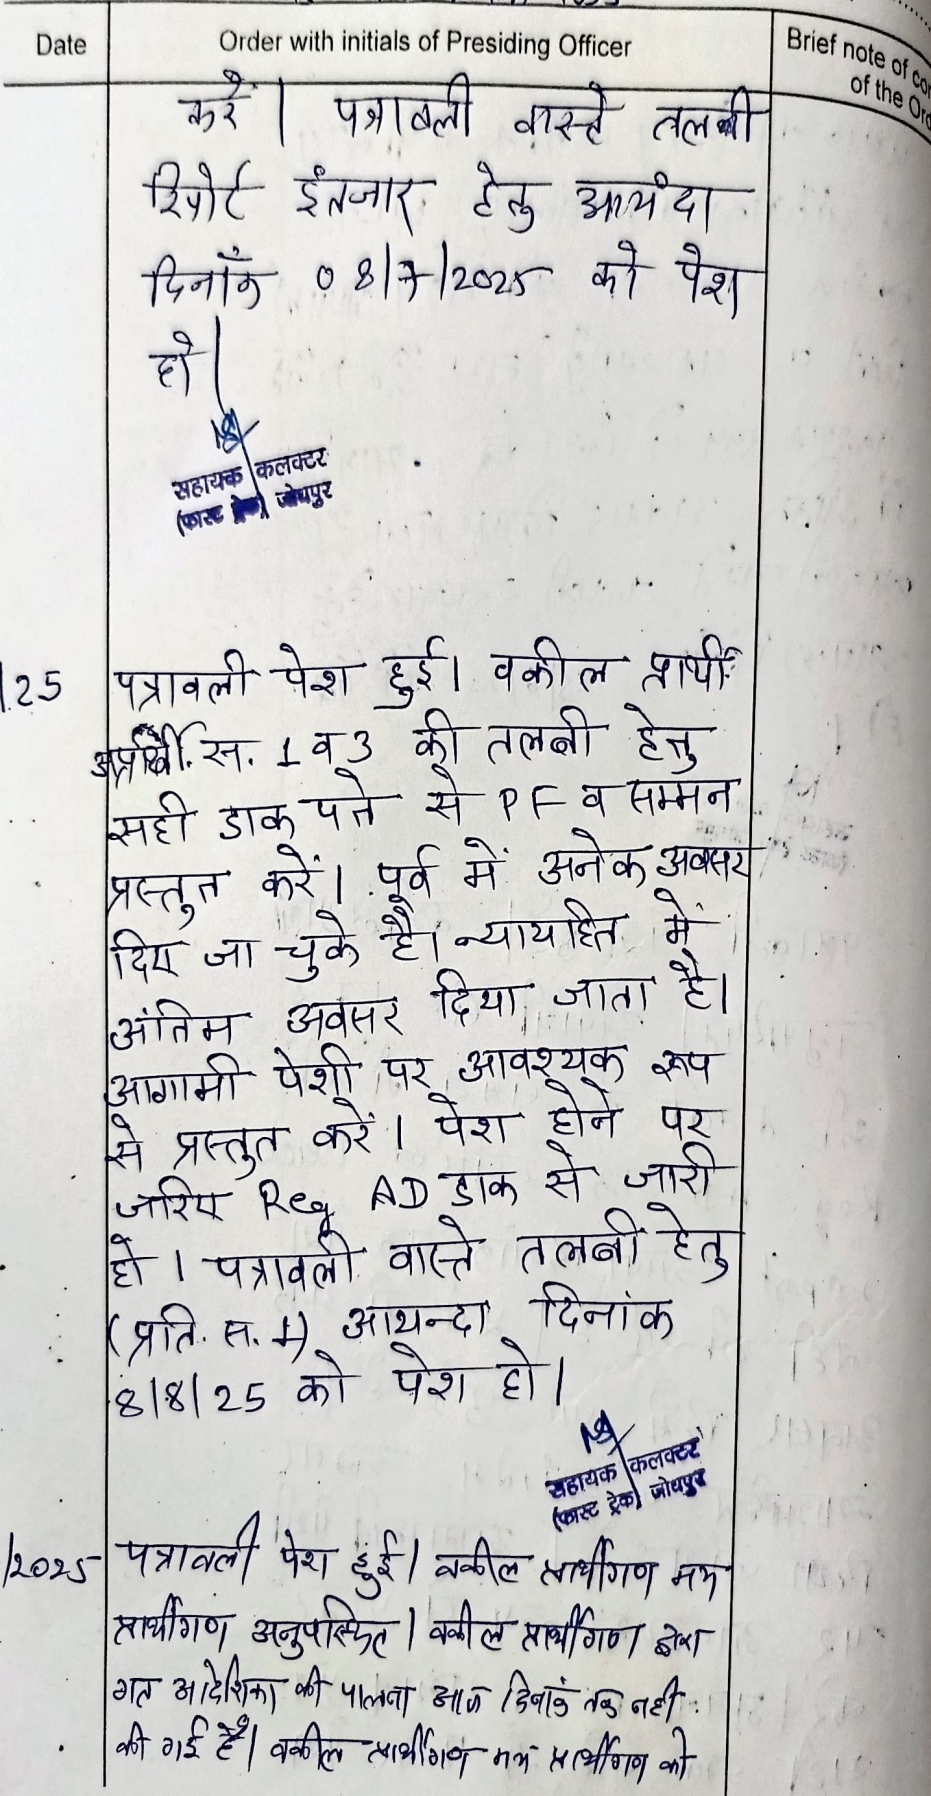 Date Order with initials of Presiding Officer Brief note of
of the
करें। पत्रावली वास्ते तलबी
रिपोर्ट इंतजार हेतु आयंदा
दिनाँक 08/7/2025 को पेश
हो।
सहायक कलक्टर
(फास्ट ट्रेक) जोधपुर
25 पत्रावली पेश हुई। वकील प्रार्थी
अप्रार्थी. स. 1 व 3 की तलबी हेतु
सही डाक पते से PF व सम्मन
प्रस्तुत करें। पूर्व में अनेक अवसर
दिए जा चुके है। न्यायहित में
अंतिम अवसर दिया जाता है।
आगामी पेशी पर आवश्यक रूप
से प्रस्तुत करें। पेश होने पर
जरिए Reg AD डाक से जारी
हो। पत्रावली वास्ते तलबी हेतु
(प्रति. स. 1) आयन्दा दिनांक
8/8/25 को पेश हो।
सहायक कलक्टर
(फास्ट ट्रेक) जोधपुर
/2025 पत्रावली पेश हुई। वकील प्रार्थीगण मय
प्रार्थीगण अनुपस्थित। वकील प्रार्थीगण द्वारा
गत आदेशिका की पालना आज दिनांक तक नही
की गई है। वकील प्रार्थीगण मय प्रार्थीगण को